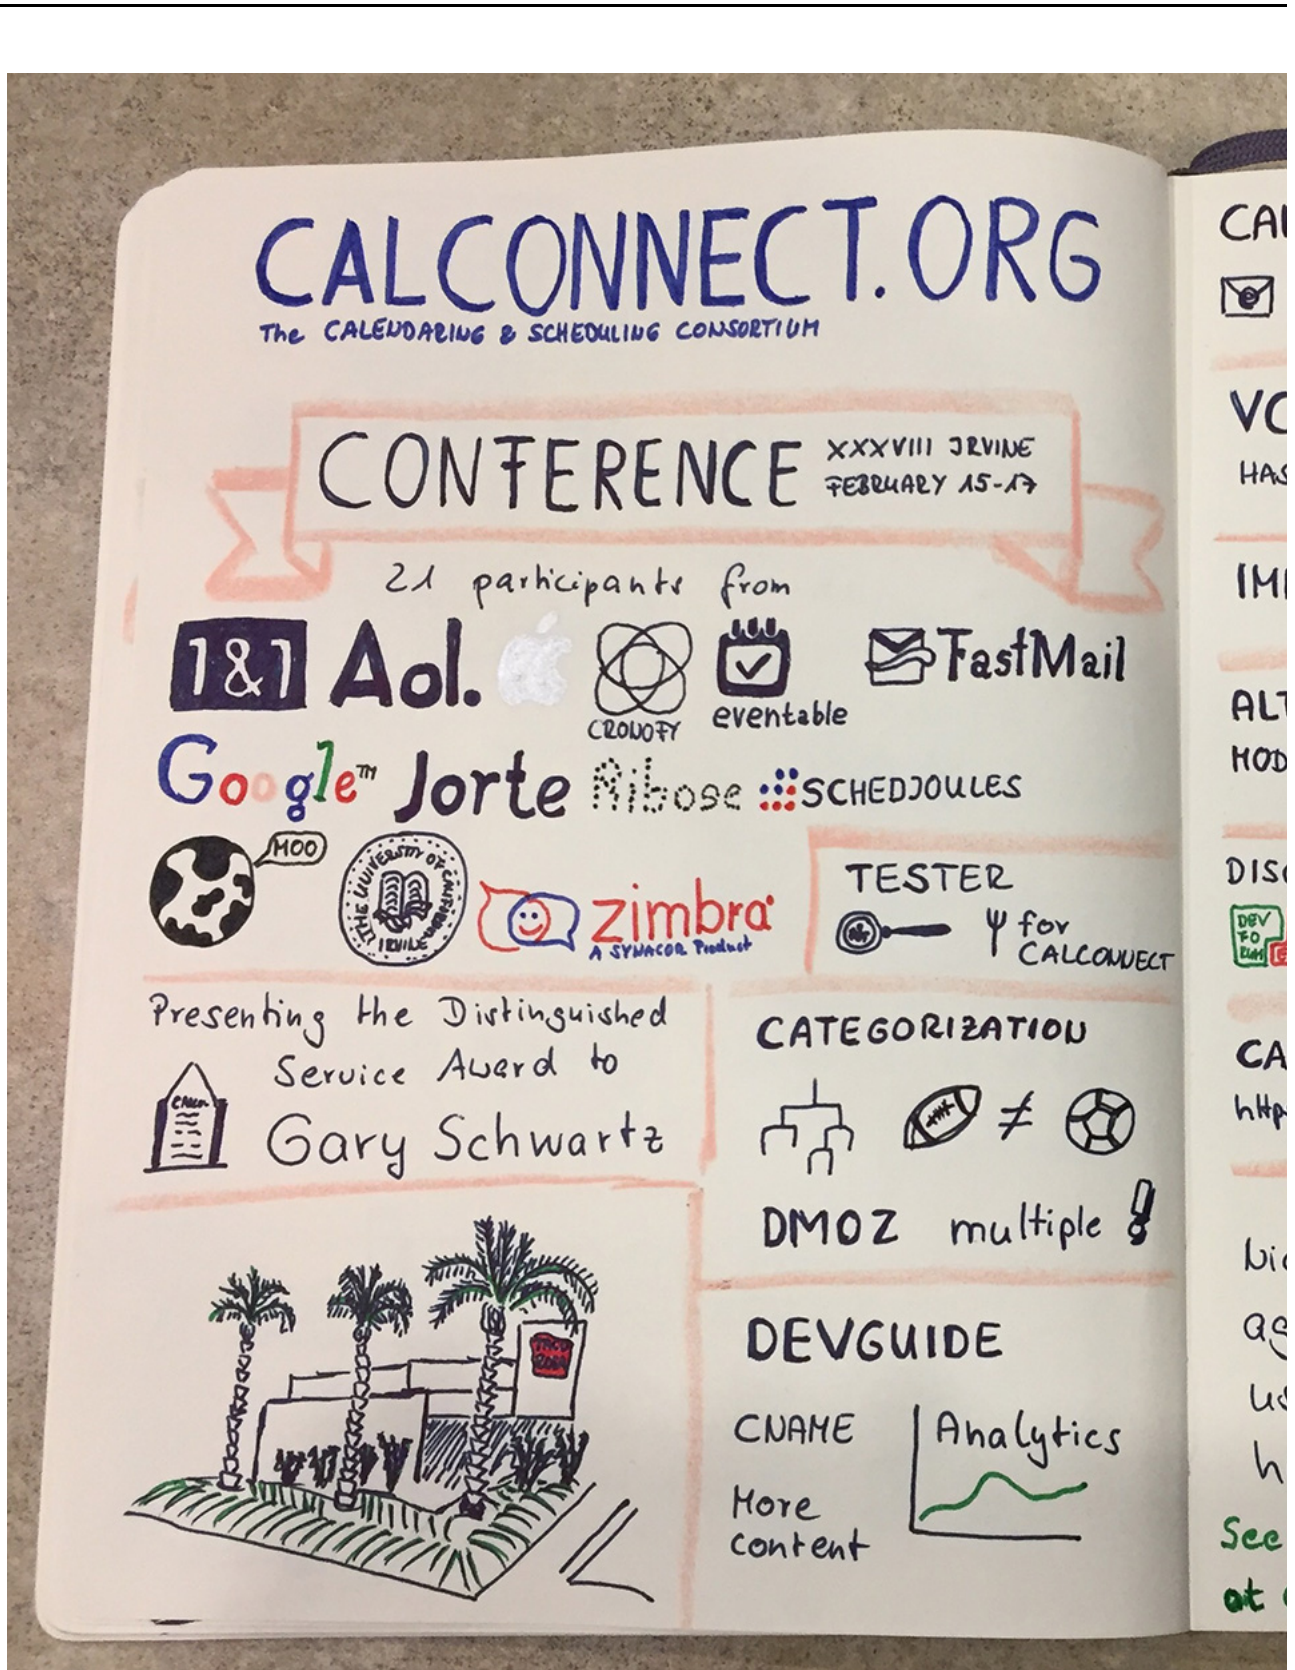 CALCONNECT.ORG
The CALENDARING & SCHEDULING CONSORTIUM
CONFERENCE
XXXVIII IRVINE
FEBRUARY 15-17
21 participants from
1&1 Aol.
CRONOFY
eventable
FastMail
Google™ Jorte Ribose SCHEDJOULES
MOO
THE UNIVERSITY OF CALIFORNIA
IRVINE
zimbra
A SYNACOR Product
TESTER
for
CALCONNECT
Presenting the Distinguished
Service Award to
Gary Schwartz
CATEGORIZATION
≠
DMOZ multiple !
DEVGUIDE
CNAME
More
content
Analytics
CAL
VC
HAS
IM
ALT
MOD
DISC
DEV
FO
CA
http
Nic
ag
us
h
See
at